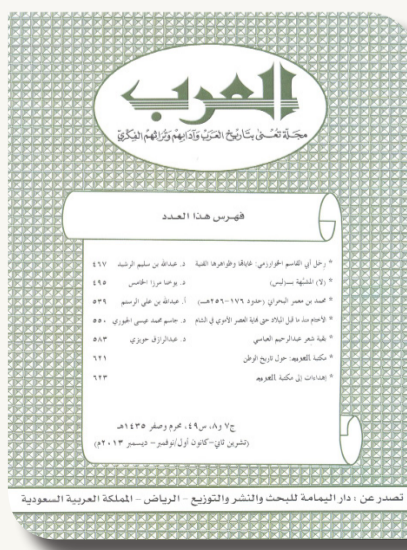 العرب
مجلة تعنى بتاريخ العرب وآدابهم وتراثهم الفكري
فهرس هذا العدد
* رحل أبي القاسم الخوارزمي: غاياتها وظواهرها الفنية د. عبدالله بن سليم الرشيد ٤٦٧
* (لا) المشبهة بـ(ليس) د. يوحنا مرزا الخامس ٤٩٥
* محمد بن معمر البحراني (حدود ١٧٦-٢٥٦هـ) أ. عبدالله بن علي الرستم ٥٣٩
* الأختام منذ ما قبل الميلاد حتى نهاية العصر الأموي في الشام د. جاسم محمد عيسى الجبوري ٥٥٠
* بقية شعر عبدالرحيم العباسي د. عبدالرازق حويزي ٥٨٣
* مكتبة العرب: حول تاريخ الوطن ٦٢١
* إهداءات إلى مكتبة العرب ٦٢٣
ج٧ و٨، س٤٩، محرم وصفر ١٤٣٥هـ
(تشرين ثاني-كانون أول/نوفمبر - ديسمبر ٢٠١٣م)
تصدر عن : دار اليمامة للبحث والنشر والتوزيع - الرياض - المملكة العربية السعودية